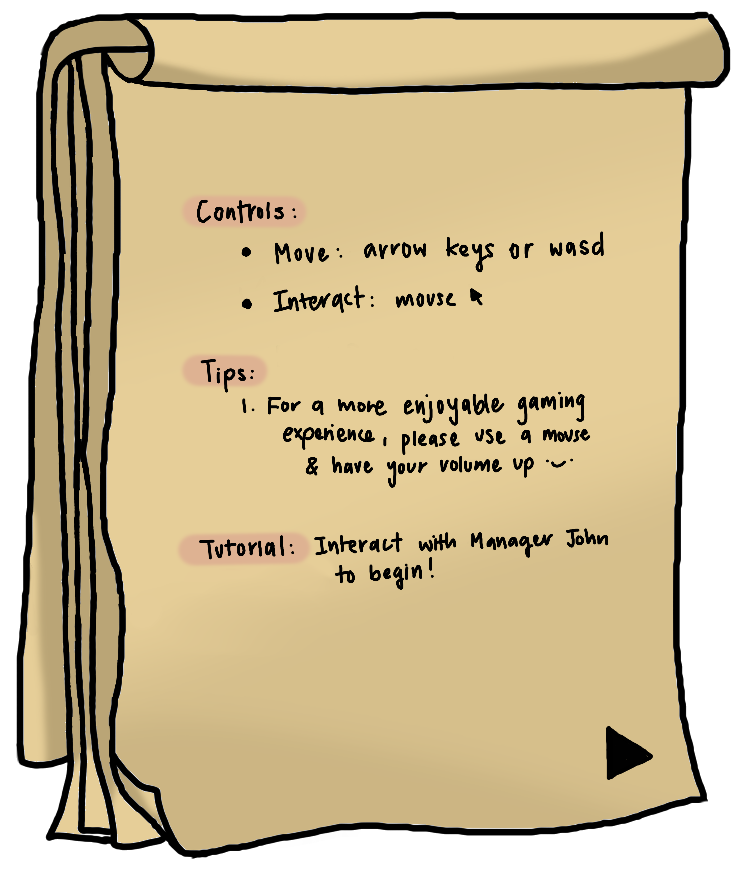 Controls:
• Move: arrow keys or wasd
• Interact: mouse
Tips:
1. For a more enjoyable gaming
experience, please use a mouse
& have your volume up
Tutorial: Interact with Manager John
to begin!